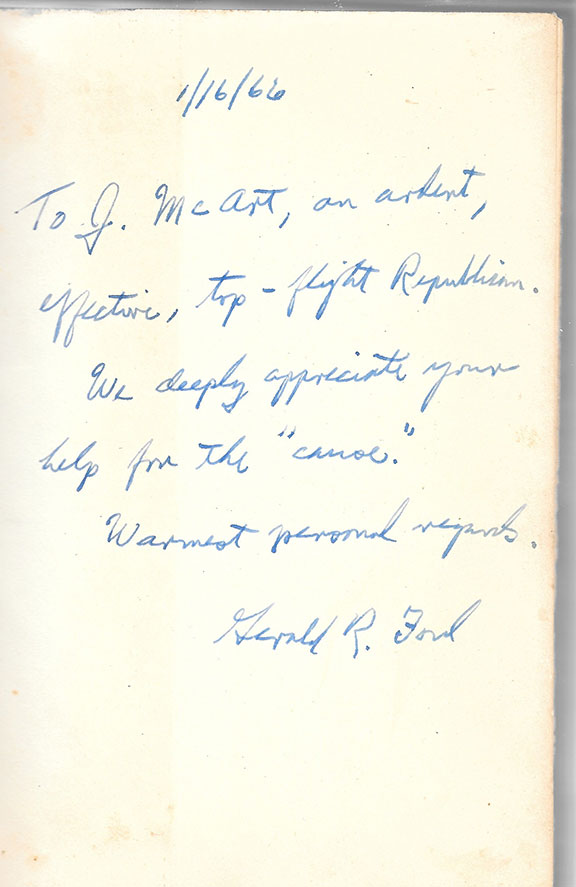 1/16/66
To J. McArt, an ardent,
effective, top-flight Republican.
We deeply appreciate your
help for the "cause."
Warmest personal regards.
Gerald R. Ford